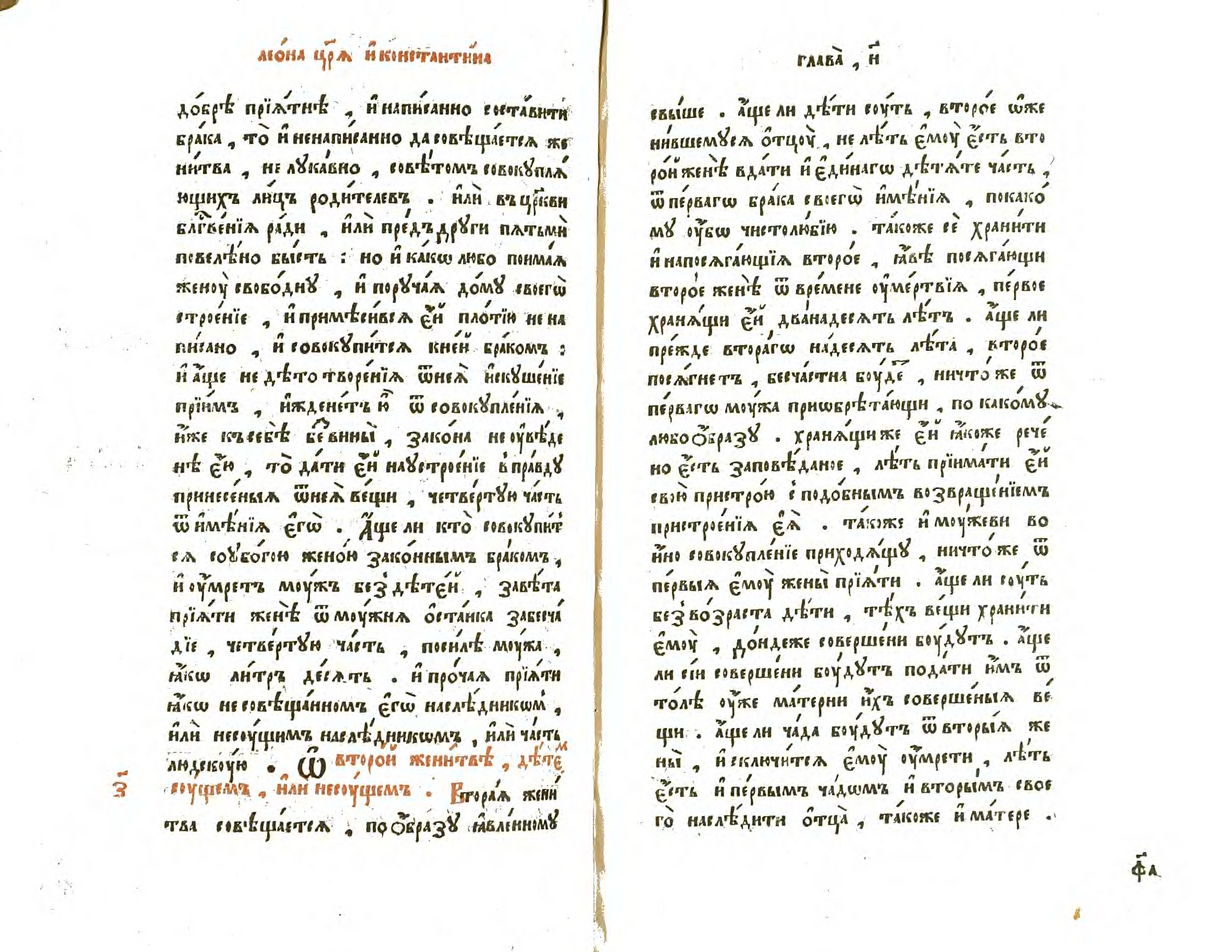 леѻ́на цр҃ѧ и҆константи́на
до́брѣ прїѧ́тнѣ , и҆написанно соста́вити
бра́ка , то̀ и҆ненапи́санно дасовѣща́етсѧ же
ни́тва , не лука́вно , совѣ́томъ совокуплѧ́
ющихъ ли́цъ роди́телевъ . и҆лѝ въцр҃кви
блгⷭ҇ве́нїѧ ра́ди , и҆лѝ пре́дъ дру́ги пѧтьмѝ
повелѣ́но бы́сть : но и҆ ка́кѡ лю́бо поима́ѧ
женоу̀ свобо́дну , и҆ поруча́ѧ до́му своегѡ̀
строе́нїе , и҆примѣси́всѧ е҆́й пло́тїю нена
пи́сано , и҆ совокупи́тсѧ кне́й бра́комъ :
и҆ а҆́ще не дѣ́тотворе́нїѧ ѿнеѧ̀ и҆скуше́нїе
прїи́мъ , и҆ждене́тъ ю҆̀ ѿ совокупле́нїѧ ,
и҆́же къ себѣ̀ беⁿвины̀ , зако́на не оувѣ́де
нѣ е҆́ю , то̀ да́ти е҆́й на устрое́нїе впра́вду
принесе́ныѧ ѿнеѧ̀ ве́щи , четве́ртую ча́сть
ѿ и҆мѣ́нїѧ е҆гѡ̀ . А҆́ще ли кто̀ совокупи́т
сѧ соубо́гою жено́ю зако́ннымъ бра́комъ ,
и҆ оу҆мретъ моу́жъ без̾ дѣте́й , завѣ́та
прїѧ́ти женѣ̀ ѿ моу́жнѧ ѻ҆ста́нка забесча́
дїе , четве́ртую ча́сть , поси́лѣ моу́жа ,
ꙗ҆́кѡ ли́тръ де́сѧть . и҆ про́чаѧ прїѧ́ти
ꙗ҆́кѡ не совѣща́нномъ е҆гѡ̀ наслѣ́дникѡм ,
и҆лѝ несоу́щимъ наслѣ́дникѡмъ , и҆лѝ ча́сть
людскоу́ю . Ѽ второ́й жени́твѣ , дѣ́теⷨ
з҃
соу́щемъ , и҆лѝ несоу́щемъ . Втора́ѧ жени́
тва совѣща́етсѧ , по ѻ҆́бразу ꙗ҆вле́нному
глава̀ , и҃
свы́ше . а҆́ще ли дѣ́ти соу́ть , второ́е ѡ҆же
ни́вшемуся ѻ҆тцоу̀ , не лѣ́ть е҆моу̀ е҆́сть вто
ро́й женѣ̀ вда́ти и҆ е҆ди́нагѡ дѣ́тѧте ча́сть ,
ѿ пе́рвагѡ бра́ка своегѡ̀ и҆мѣ́нїѧ , покако́
му оу҆́бѡ чистолю́бїю . та́коже сѐ храни́ти
и҆ напосѧга́ющїѧ второ́е , ꙗ҆́вѣ посѧга́ющи
второ́е женѣ̀ ѿ вре́мене оу҆ме́ртвїѧ , пе́рвое
хранѧ́щи е҆́й двана́десѧть лѣ́тъ . а҆́ще ли
пре́жде втора́гѡ на́десѧть лѣ́та , второ́е
посѧ́гнетъ , бесча́стна боу́деⷮ , ничто́же ѿ
пе́рвагѡ моу́жа приѡбрѣта́ющи , по како́му
любо ѻ҆́бразу . хранѧ́щи же е҆́й ꙗ҆́коже рече
но е҆́сть запове́даное , лѣ́ть прїима́ти е҆́й
свою̀ пристро́ю с̾подо́бнымъ возвраще́нїемъ
пристрое́нїѧ е҆ѧ̀ . та́коже и҆ моу́жеви во
и҆́но совокупле́нїе приходѧ́щу , ничто́же ѿ
пе́рвыѧ е҆моу̀ жены̀ прїѧ́ти . а҆́ще ли соу́ть
без̾ во́зраста дѣ́ти , тѣ́хъ ве́щи храни́ти
е҆моу̀ , до́ндеже соверше́ни боу́дутъ . а҆́ще
ли сїи́ соверше́ни боу́дутъ пода́ти и҆̀мъ ѿ
то́лѣ оу҆́же ма́терни и҆́хъ соверше́ныѧ ве́
щи . а҆́ще ли ча́да боу́дутъ ѿ вторы́ѧ же
ны̀ , и҆ склю́читсѧ е҆моу̀ оу҆мре́ти , лѣ́ть
е҆́сть и҆ пе́рвымъ ча́дѡмъ и҆ вторы́мъ свое
го̀ наслѣ́дити ѻ҆тца̀ , та́коже и҆ ма́тере .
ф҃а